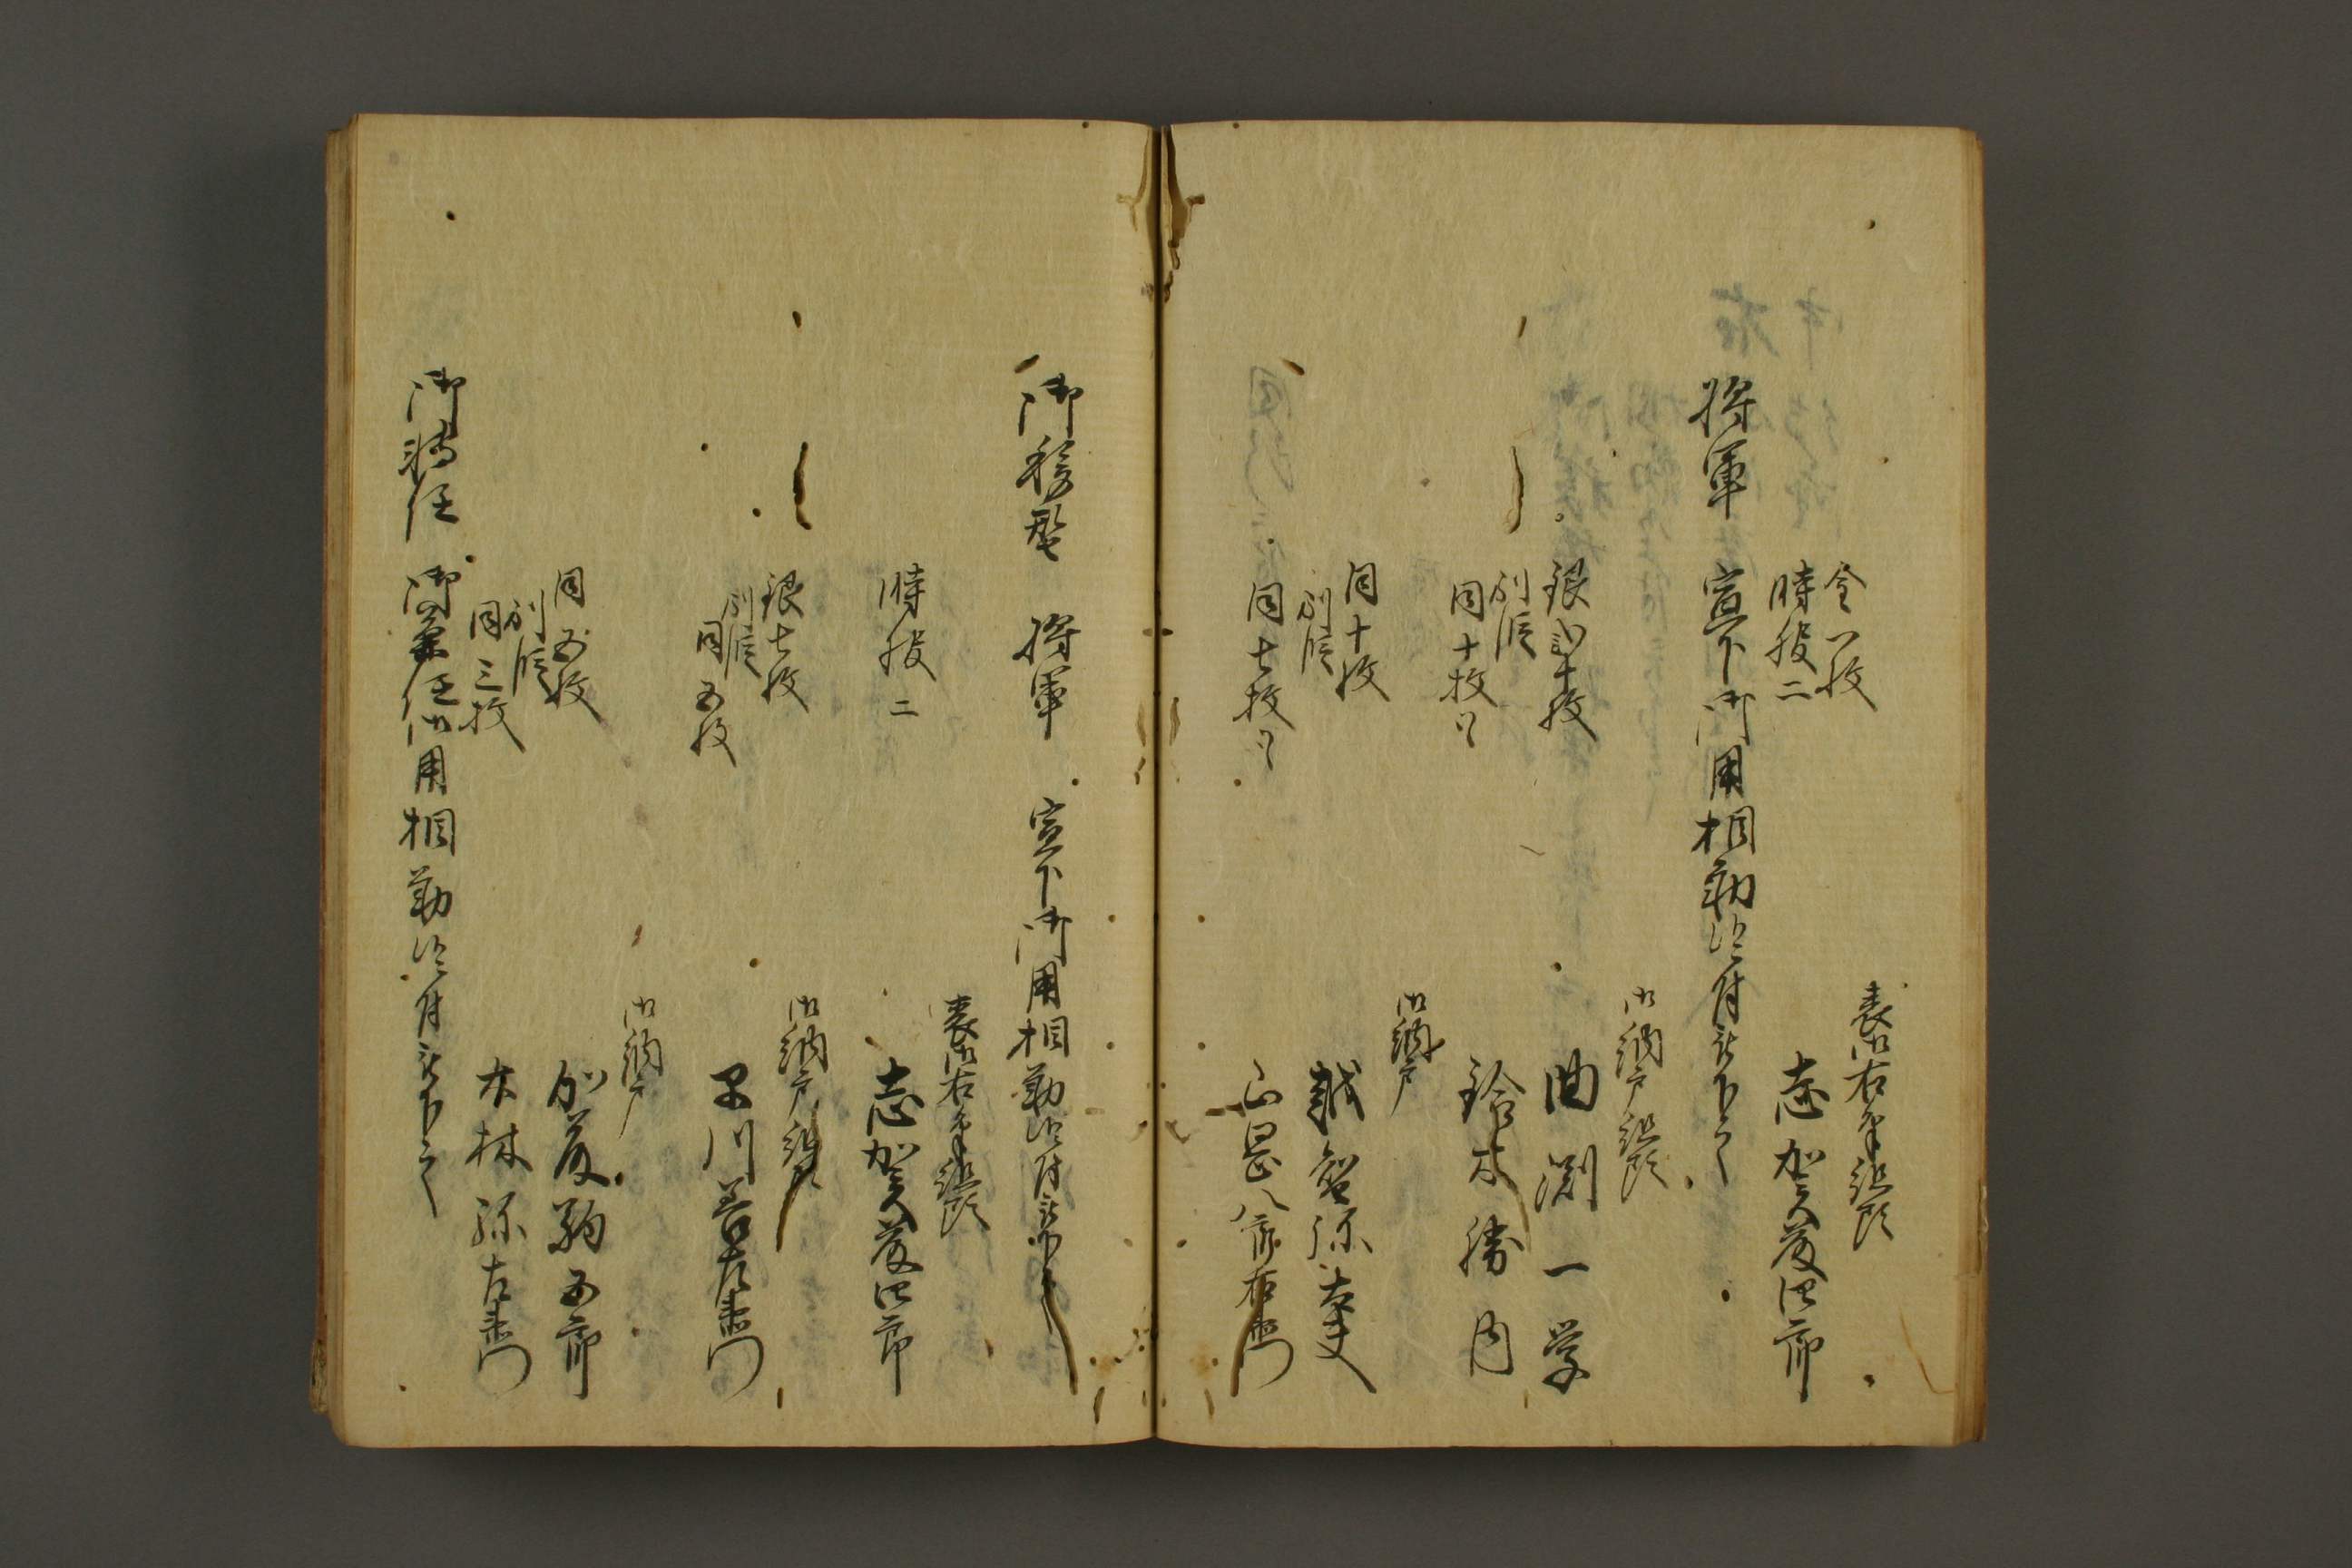 表御右筆組頭
金一枚
時服二
志賀藤四郎
将軍 宣下御用相勤候付被下之
御納戸組頭
銀弐十枚
曲渕一学
別段
同十枚ツヽ
鈴木勝内
御納戸
同十枚
越智弥太夫
別段
同七枚ツヽ
山田八郎右衛門
御移替 将軍 宣下御用相勤候付被下之
表御右筆組頭
時服二
志賀藤四郎
御納戸組頭
銀七枚
別段
早川善左衛門
同五枚
御納戸
同五枚
加藤駒五郎
別段
同三枚
木林弥左衛門
御転任 御兼任御用相勤候付被下之